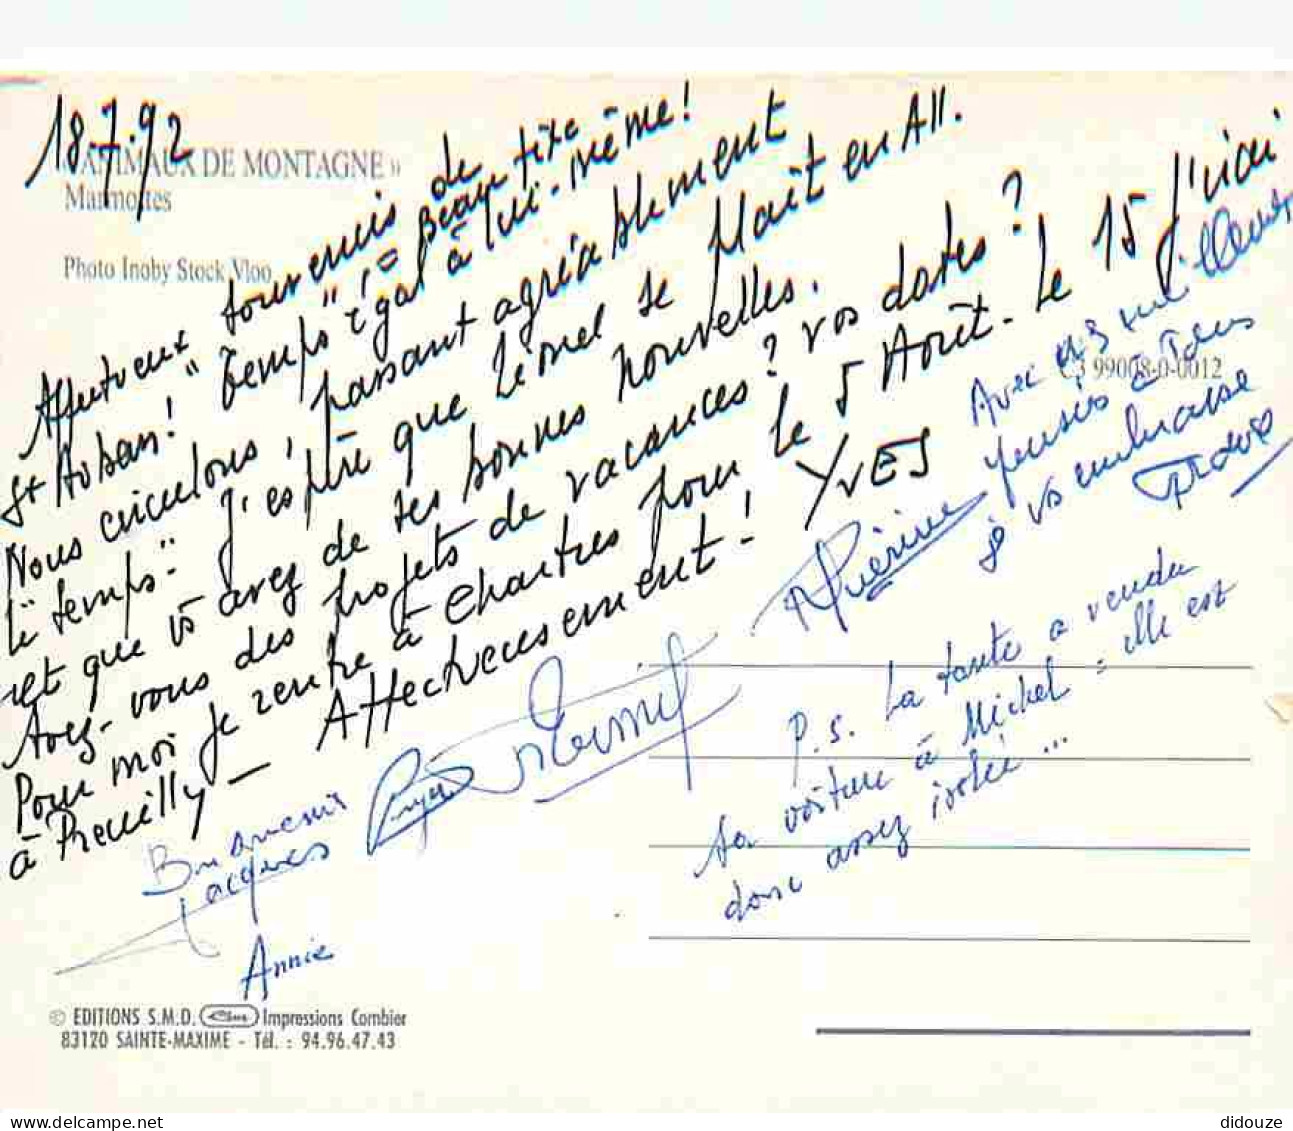 18.7.92
« ANIMAUX DE MONTAGNE »
Marmottes
Photo Inoby Stock Vloo
Affectueux souvenirs de
St Auban! "Temps" = Beau fixe
égal à lui-même!
Nous circulons, passant agréablement
le "temps". J'espère que Lionel se plaît en All.
et que vs avez de ses bonnes nouvelles.
Avez-vous des projets de vacances? Vos dates?
Pour moi je rentre à Chartres pour le 5 Août. Le 15 j'irai
à Preuilly — Affectueusement! YVES
C3 99008-0-0012
Avec mes meilleures
pensées à Tous
je vs embrasse
Bon souvenir
Jacques
Annie
P.S. La tante a vendu
sa voiture à Michel = elle est
donc assez isolée ...
© EDITIONS S.M.D. Cim Impressions Combier
83120 SAINTE-MAXIME - Tél. : 94.96.47.43
didouze